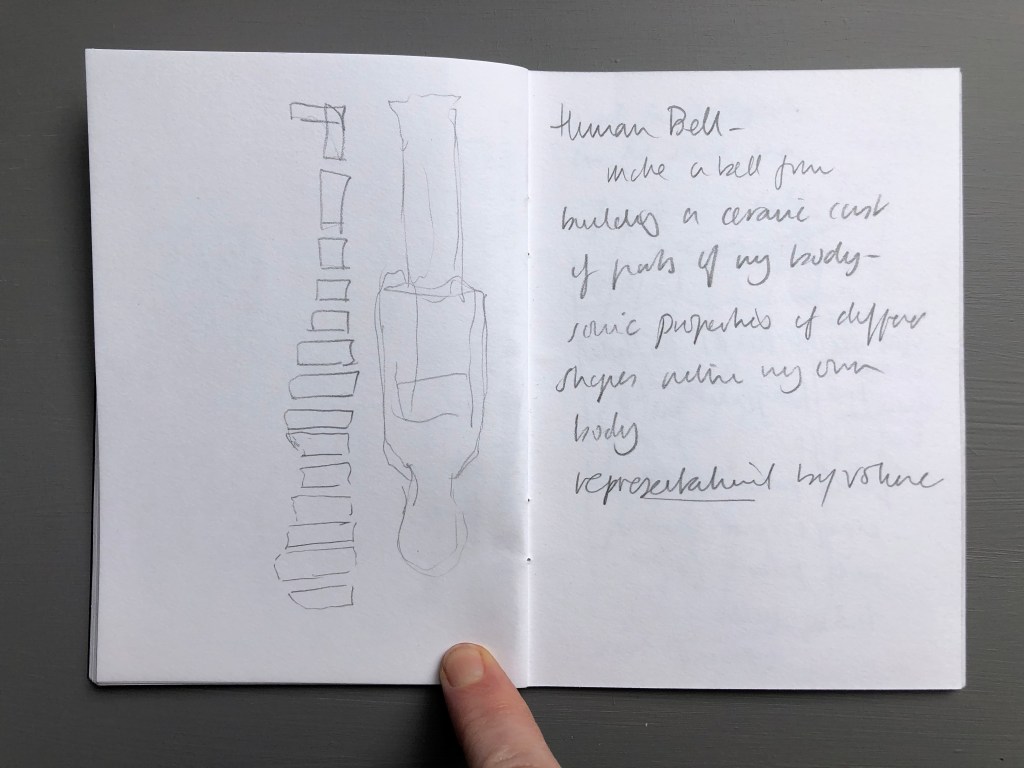 Human Bell –
make a bell from
building a ceramic cast
of parts of my body –
sonic properties of different
shapes within my own
body
representation by volume